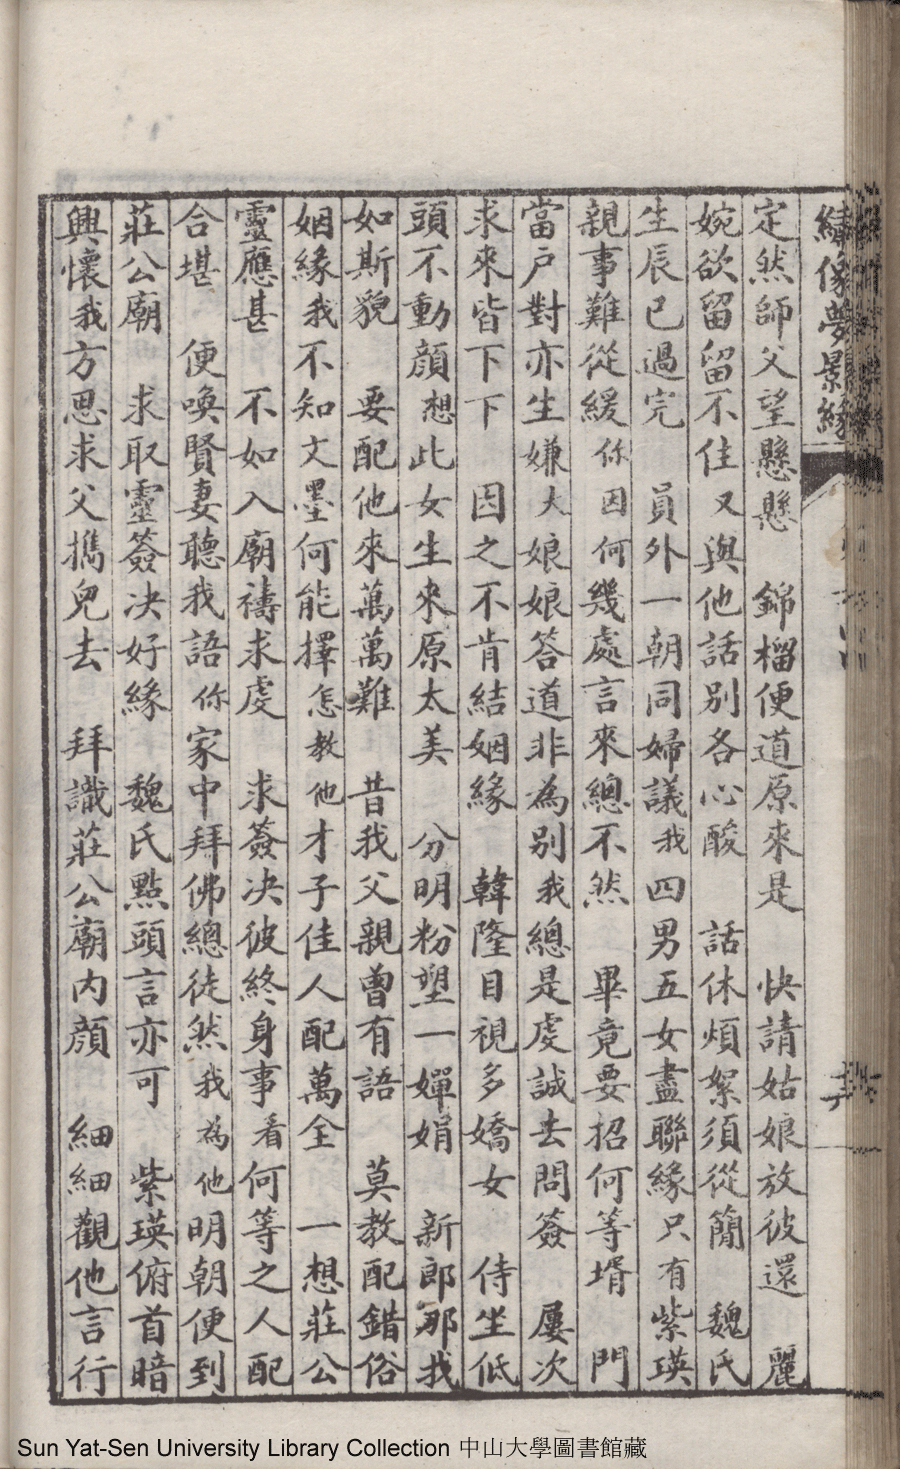 繡像夢影緣
定然師父望懸懸　錦榴便道原來是　快請姑娘放彼還　麗
婉欲留留不住又與他話別各心酸　話休煩絮須從簡　魏氏
生辰已過完　員外一朝同婦議我四男五女盡聯緣只有紫瑛
親事難從緩你因何幾處言來總不然　畢竟要招何等壻　門
當戶對亦生嫌大娘娘答道非為別我總是虔誠去問簽　屢次
求來皆下下　因之不肯結姻緣　韓隆目視多嬌女　侍坐低
頭不動顔想此女生來原太美　分明粉塑一嬋娟　新郎那找
如斯貌　要配他來萬萬難　昔我父親曾有語　莫教配錯俗
姻緣我不知文墨何能擇怎教他才子佳人配萬全　一想莊公
靈應甚　不如入廟禱求虔　求簽决彼終身事看何等之人配
合堪　便喚賢妻聽我語你家中拜佛總徒然我為他明朝便到
莊公廟　求取靈簽决好緣　魏氏點頭言亦可　紫瑛俯首暗
興懷我方思求父擕兒去　拜識莊公廟内顔　細細觀他言行
Sun Yat-Sen University Library Collection 中山大學圖書館藏